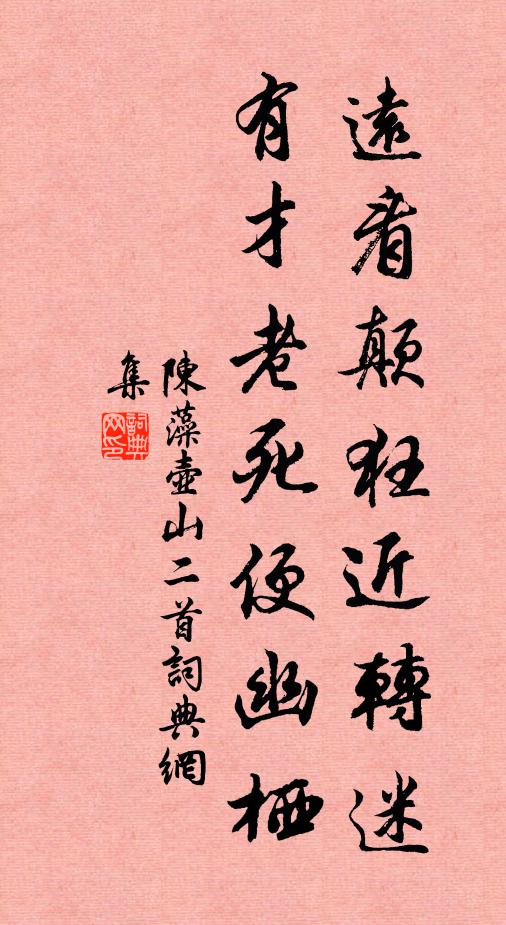 遠看顛狂近轉迷
有才老死便幽栖
陳藻壺山二首詞典網
集
詞典网印